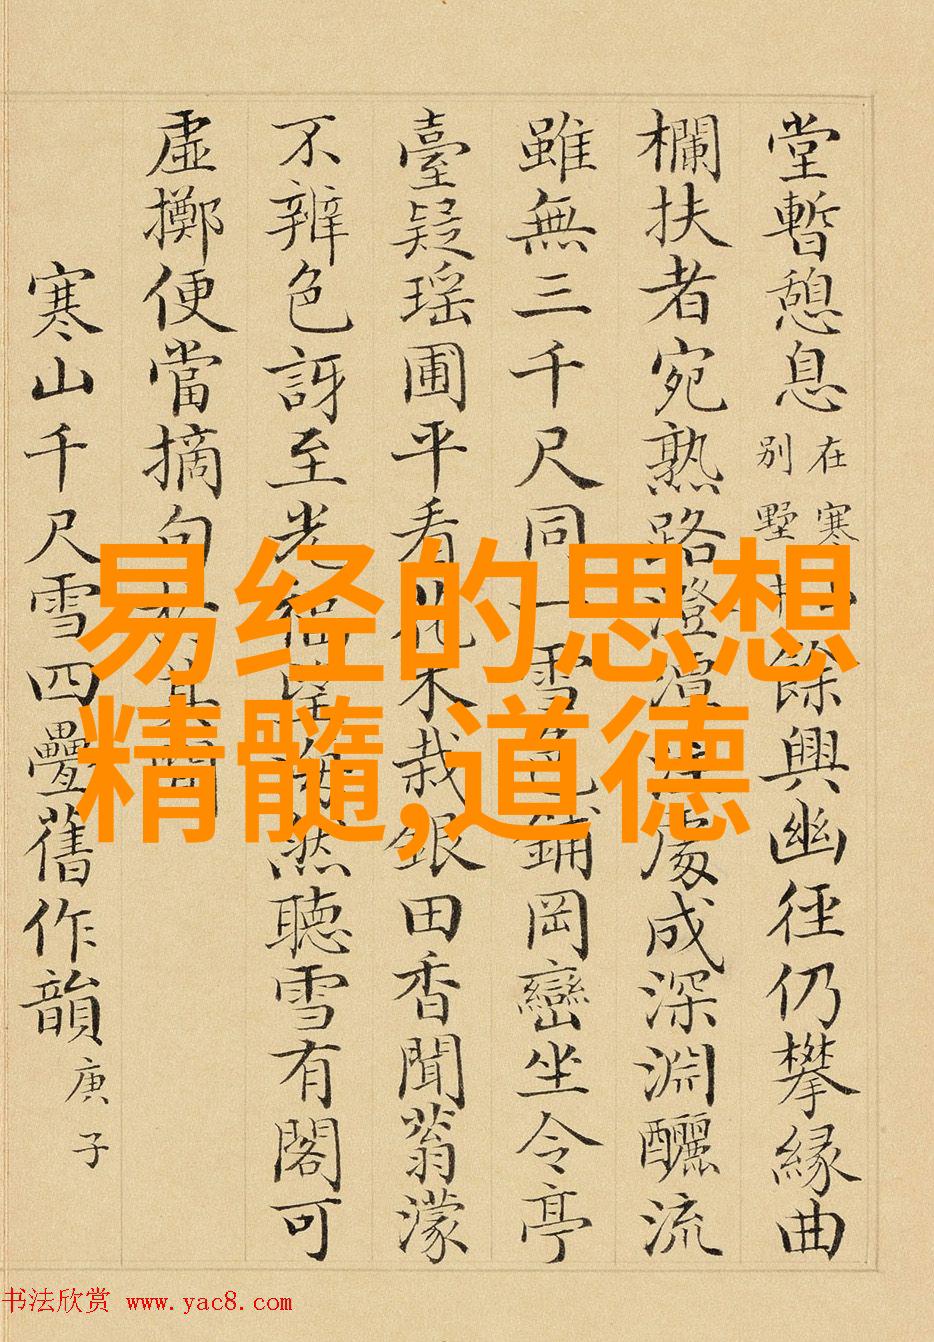 堂暫憩息在寒別墅餘興幽徑仍攀緣曲
欄扶者宛熟路澄潭處成深淵釃流
雖無三千尺同一雪色鋪岡巒坐令亭
臺疑瑤圃平看木栽銀田香聞蓊濛
不辨色訝至光然聽雪有閣可
虛擲便當摘句
寒山千尺雪四疊舊作韻庚子
易经的思想
精髓,道德
书法欣赏 www.yac8.com